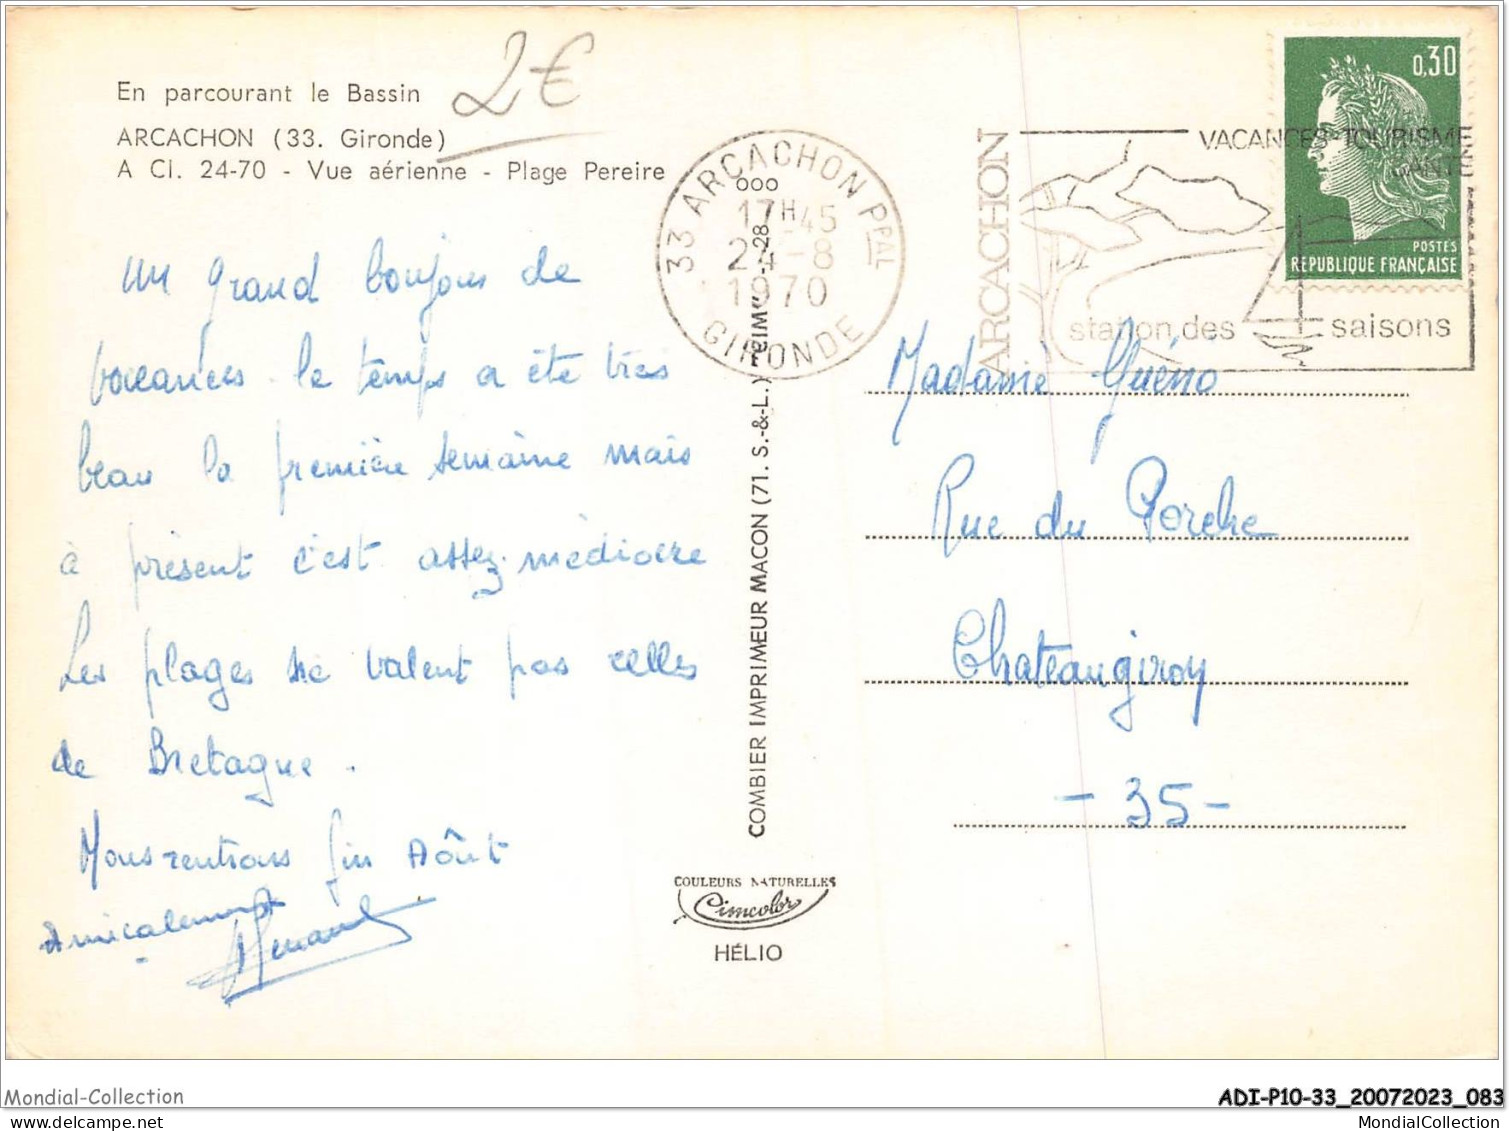 2€
En parcourant le Bassin
ARCACHON (33. Gironde)
A CI. 24-70 - Vue aérienne - Plage Pereire
un grand bonjour de
vacances. le temps a été très
beau la première semaine mais
à présent c'est assez médiocre
Les plages ne valent pas celles
de Bretagne.
Nous rentrons fin Aôut
Amicalement
33 ARCACHON PPAL
17H45
24-8
1970
GIRONDE
COMBIER IMPRIMEUR MACON (71. S.-&-L.)
COULEURS NATURELLES
Cimcolor
HÉLIO
ARCACHON
VACANCES-TOURISME
SANTÉ
station des saisons
0,30
POSTES
REPUBLIQUE FRANÇAISE
Madame Guéno
Rue du Porche
Chateaugiron
- 35 -
Mondial-Collection
ADI-P10-33_20072023_083
delcampe.net
MondialCollection